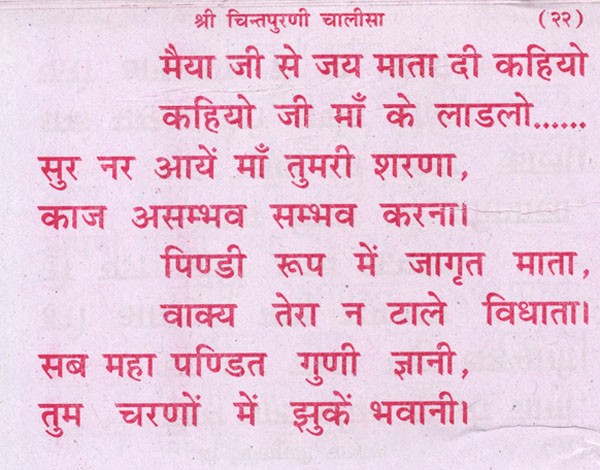 श्री चिन्तपुरणी चालीसा (२२)
मैया जी से जय माता दी कहियो
कहियो जी माँ के लाडलो......
सुर नर आयें माँ तुमरी शरणा,
काज असम्भव सम्भव करना।
पिण्डी रूप में जागृत माता,
वाक्य तेरा न टाले विधाता।
सब महा पण्डित गुणी ज्ञानी,
तुम चरणों में झुकें भवानी।